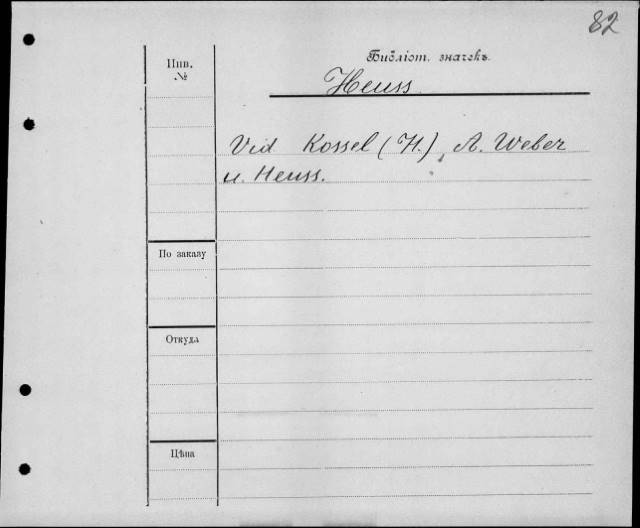 82
Инв.
№
Библіот. значекъ.
Heuss
Vid Kossel (H.), A. Weber
u. Heuss.
По заказу
Откуда
Цѣна